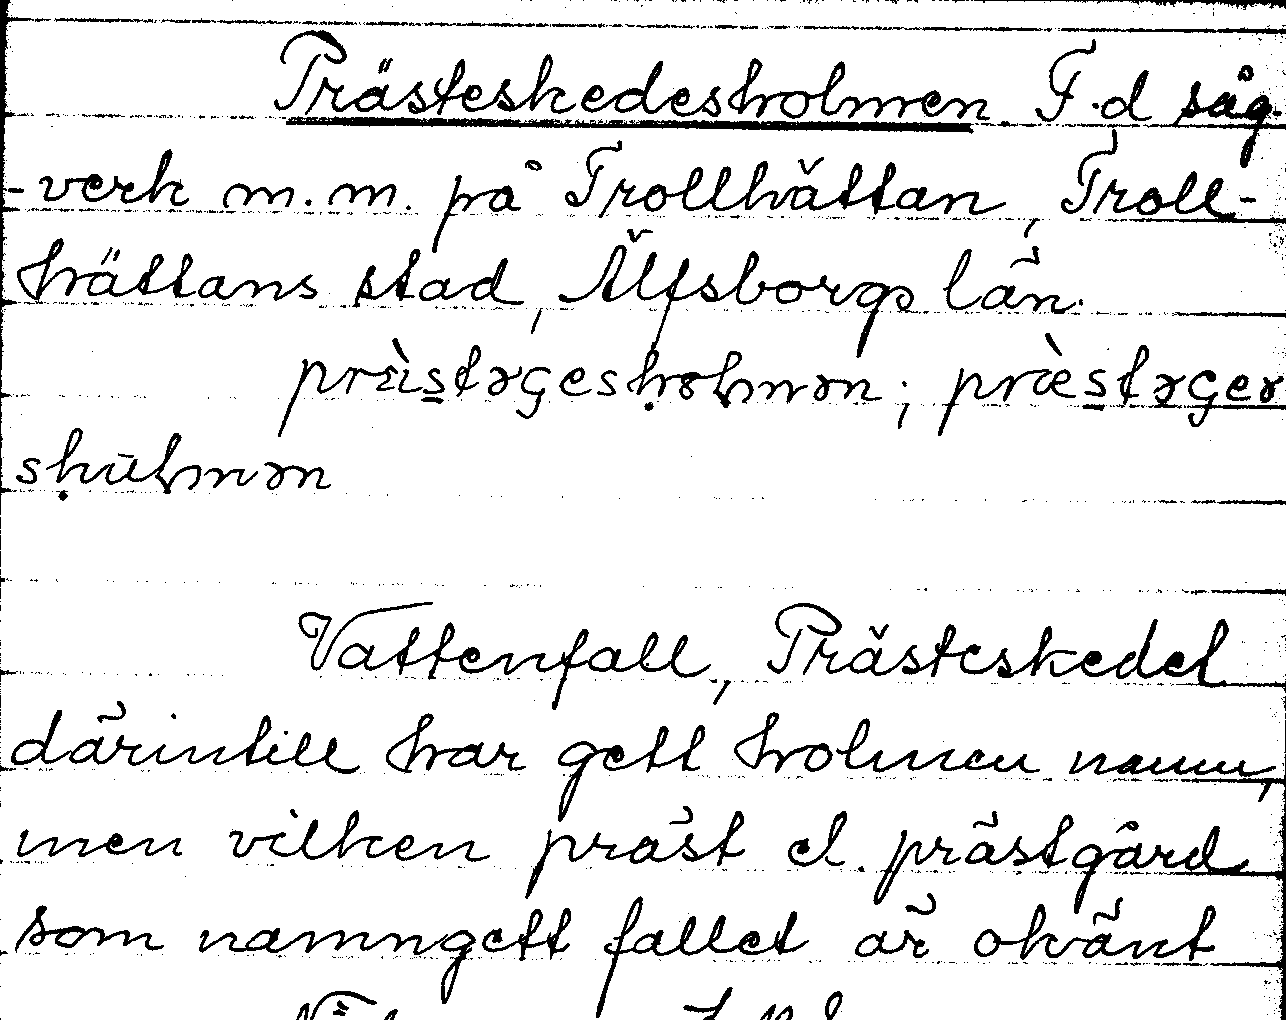 Prästeskedesholmen F.d såg-
-verk m.m. på Trollhättan, Troll-
hättans stad, Älfsborgs län.
Vattenfall, Prästeskedet
därintill har gett holmen namn,
men vilken präst el. prästgård
som namngett fallet är okänt